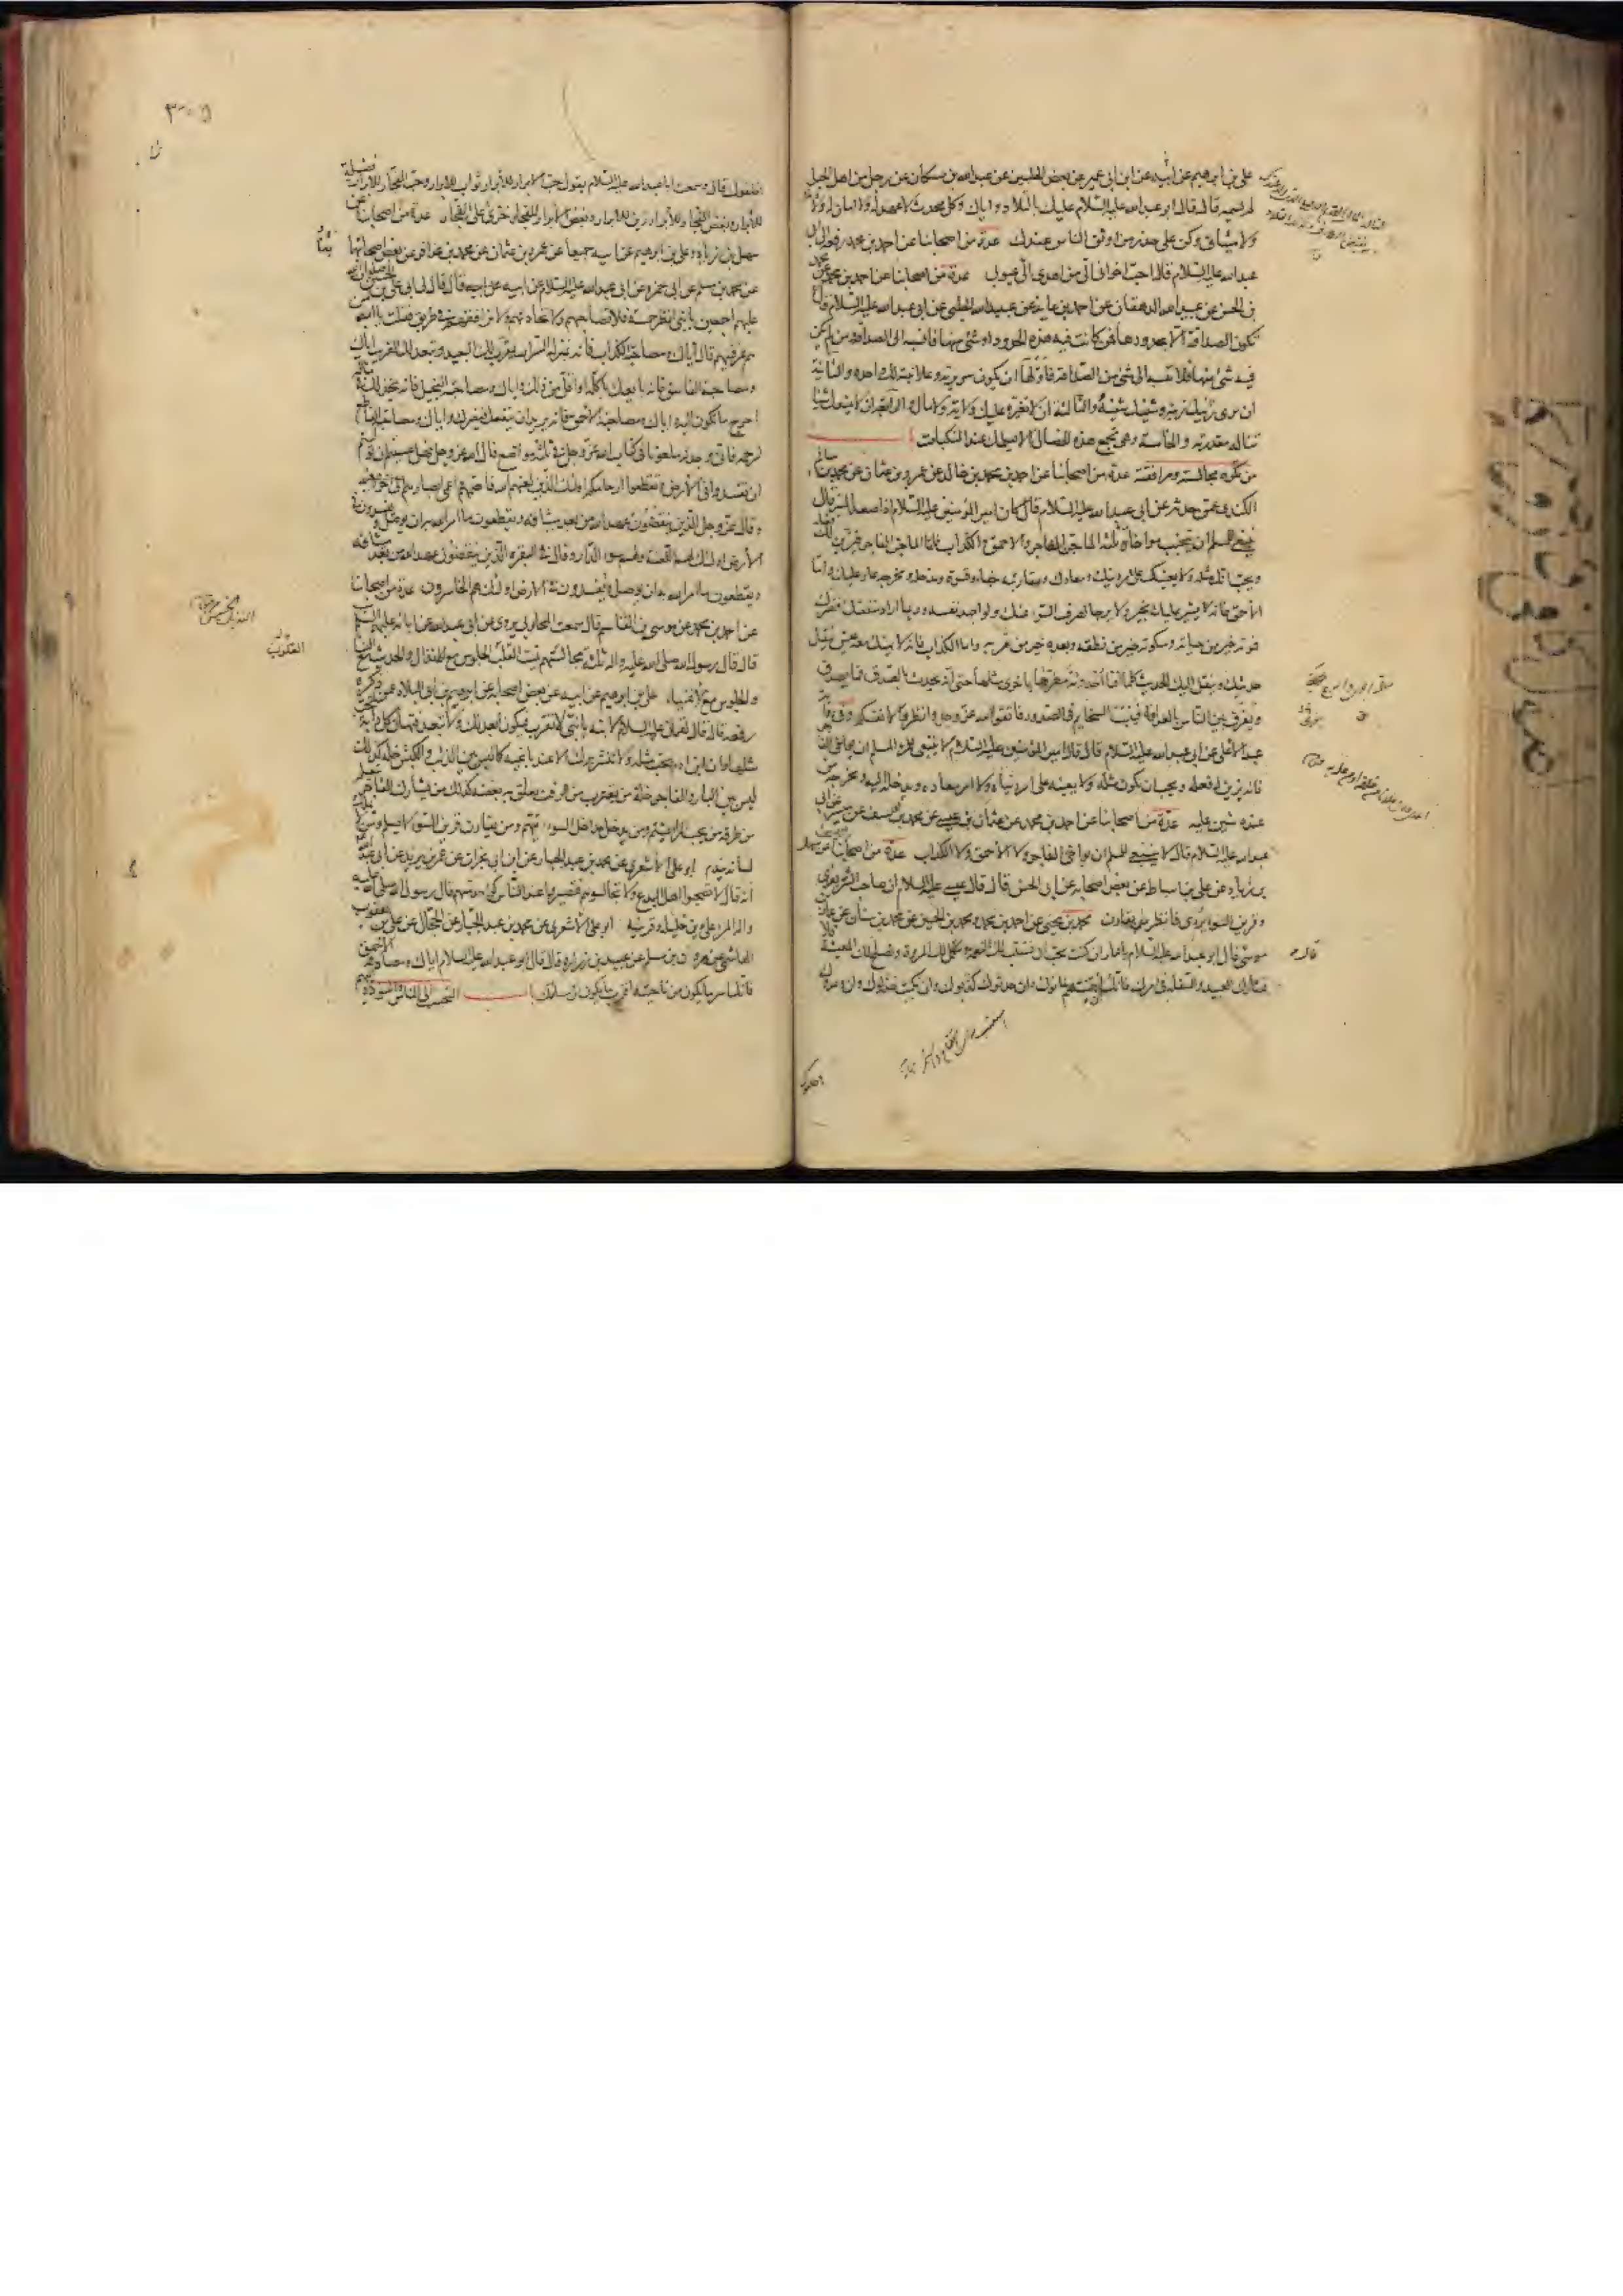 علي بن ابراهيم عن ابيه عن ابن ابي عمير عن بعض الحلبيين عن عبدالله بن مسكان عن رجل من اهل الجبل
لم يسمه قال قال ابو عبد الله عليه السلام عليك بالتلاد واياك وكل محدث لا عهد له ولا امان له ولا ذمة
ولا ميثاق وكن على حذر من اوثق الناس عندك عدة من اصحابنا عن احمد بن محمد رفعه الى ابي
عبد الله عليه السلام قال احب اخواني الي من اهدى الي عيوبي عدة من اصحابنا عن احمد بن محمد عن محمد
بن الحسن عن عبيد الله الدهقان عن احمد بن عايذ عن عبيد الله الحلبي عن ابي عبد الله عليه السلام قال
لا تكون الصداقة الا بحدودها فمن كانت فيه هذه الحدود او شئ منها فانسبه الى الصداقة ومن لم يكن
فيه شئ منها فلا تنسبه الى شئ من الصداقة فاولها ان تكون سريرته وعلانيته لك واحدة والثانية
ان يرى زينك زينه وشينك شينه والثالثة ان لا تغيره عليك ولاية ولا مال والرابعة ان لا يمنعك شيئا
تناله مقدرته والخامسة وهي تجمع هذه الخصال ان لا يسلمك عند النكبات
من تكره مجالسته ومرافقته عدة من اصحابنا عن احمد بن محمد بن خالد عن عمرو بن عثمان عن محمد بن سالم
الكندي عمن حدثه عن ابي عبد الله عليه السلام قال كان امير المؤمنين عليه السلام اذا صعد المنبر قال
ينبغي للمسلم ان يجتنب مواخاة ثلثة الماجن الفاجر والاحمق والكذاب فاما الماجن الفاجر فيزين لك فعله
ويحب انك مثله ولا يعينك على امر دينك ومعادك ومقاربته جفاء وقسوة ومدخله ومخرجه عار عليك واما
الاحمق فانه لا يشير عليك بخير ولا يرجا لصرف السوء عنك ولو اجهد نفسه وربما اراد منفعتك فضرك
فموته خير من حياته وسكوته خير من نطقه وبعده خير من قربه واما الكذاب فانه لا يهنئك معه عيش ينقل
حديثك وينقل اليك الحديث كلما افنى احدوثة مطرها باخرى مثلها حتى انه يحدث بالصدق فما يصدق
ويفرق بين الناس بالعداوة فينبت السخايم في الصدور فاتقوا الله عز وجل وانظروا لانفسكم وفي رواية
عبد الاعلى عن ابي عبد الله عليه السلام قال قال امير المؤمنين عليه السلام لا ينبغي للمرء المسلم ان يواخي الفاجر
فانه يزين له فعله ويحب ان يكون مثله ولا يعينه على امر دنياه ولا امر معاده ومدخله اليه ومخرجه من
عنده شين عليه عدة من اصحابنا عن احمد بن محمد عن عثمان بن عيسى عن محمد بن يوسف عن ميسر عن ابي
عبد الله عليه السلام قال لا ينبغي للمسلم ان يواخي الفاجر ولا الاحمق ولا الكذاب عدة من اصحابنا عن سهل
بن زياد عن علي بن اسباط عن بعض اصحابه عن ابي الحسن قال قال عيسى عليه السلام ان صاحب الشر يعدي
وقرين السوء يردي فانظر من تقارن محمد بن يحيى عن احمد بن محمد ومحمد بن الحسين عن محمد بن سنان عن عمار بن
موسى قال قال ابو عبد الله عليه السلام يا عمار ان كنت تحب ان تستتب لك النعمة وتكمل لك المروة وتصلح لك المعيشة
فلا تشارك العبيد والسفلة في امرك فانك ان ائتمنتهم خانوك وان حدثوك كذبوك وان نكبت خذلوك وان وعدوك
اخلفوك قال وسمعت ابا عبد الله عليه السلام يقول حب الابرار للابرار ثواب للابرار وحب الفجار للابرار فضيلة
للابرار وبغض الفجار للابرار زين للابرار وبغض الابرار للفجار خزي على الفجار عدة من اصحابنا عن
سهل بن زياد وعلي بن ابراهيم عن ابيه جميعا عن عمرو بن عثمان عن محمد بن عذافر عن بعض اصحابهما
عن محمد بن مسلم عن ابي حمزة عن ابي عبد الله عليه السلام عن ابيه قال قال لي ابي علي بن الحسين صلوات الله
عليهم اجمعين يا بني انظر خمسة فلا تصاحبهم ولا تحادثهم ولا ترافقهم في طريق فقلت يا ابه من
هم عرفنيهم قال اياك ومصاحبة الكذاب فانه بمنزلة السراب يقرب لك البعيد ويبعد لك القريب واياك
ومصاحبة الفاسق فانه بايعك باكلة او اقل من ذلك واياك ومصاحبة البخيل فانه يخذلك في ماله
احوج ما تكون اليه واياك ومصاحبة الاحمق فانه يريد ان ينفعك فيضرك واياك ومصاحبة القاطع
لرحمه فاني وجدته ملعونا في كتاب الله عز وجل في ثلثة مواضع قال الله عز وجل فهل عسيتم ان توليتم
ان تفسدوا في الارض وتقطعوا ارحامكم اولئك الذين لعنهم الله فاصمهم واعمى ابصارهم الى اخر الاية
وقال عز وجل الذين ينقضون عهد الله من بعد ميثاقه ويقطعون ما امر الله به ان يوصل ويفسدون في
الارض اولئك لهم اللعنة ولهم سوء الدار وقال في البقرة الذين ينقضون عهد الله من بعد ميثاقه
ويقطعون ما امر الله به ان يوصل ويفسدون في الارض اولئك هم الخاسرون عدة من اصحابنا
عن احمد بن محمد عن موسى بن القاسم قال سمعت المحاربي يروي عن ابي عبد الله عن ابائه عليهم السلام
قال قال رسول الله صلى الله عليه واله ثلثة مجالستهم تميت القلب الجلوس مع الانذال والحديث مع النساء
والجلوس مع الاغنياء علي بن ابراهيم عن ابيه عن بعض اصحابه عن ابراهيم بن ابي البلاد عمن ذكره
رفعه قال قال لقمان عليه السلام لابنه يا بني لا تقرب فيكون ابعد لك ولا تبعد فتهان كل دابة تحب
مثلها وان ابن ادم يحب مثله ولا تنشر بزك الا عند باغيه كما ليس بين الذئب والكبش خلة كذلك
ليس بين البار والفاجر خلة من يقترب من الزفت يعلق به بعضه كذلك من يشارك الفاجر يتعلم
من طرقه من يحب المراء يشتم ومن يدخل مداخل السوء يتهم ومن يقارن قرين السوء لا يسلم ومن لا يملك
لسانه يندم ابو علي الاشعري عن محمد بن عبد الجبار عن ابن ابي نجران عن عمر بن يزيد عن ابي عبد الله
انه قال لا تصحبوا اهل البدع ولا تجالسوهم فتصيروا عند الناس كواحد منهم قال رسول الله صلى الله عليه
واله المرء على دين خليله وقرينه ابو علي الاشعري عن محمد بن عبد الجبار عن الحجال عن علي بن يعقوب
الهاشمي عن هرون بن مسلم عن عبيد بن زرارة قال قال ابو عبد الله عليه السلام اياك ومصادقة الاحمق
فانك اسر ما تكون من ناحيته اقرب ما يكون الى مساءتك التحبب الى الناس والتودد اليهم